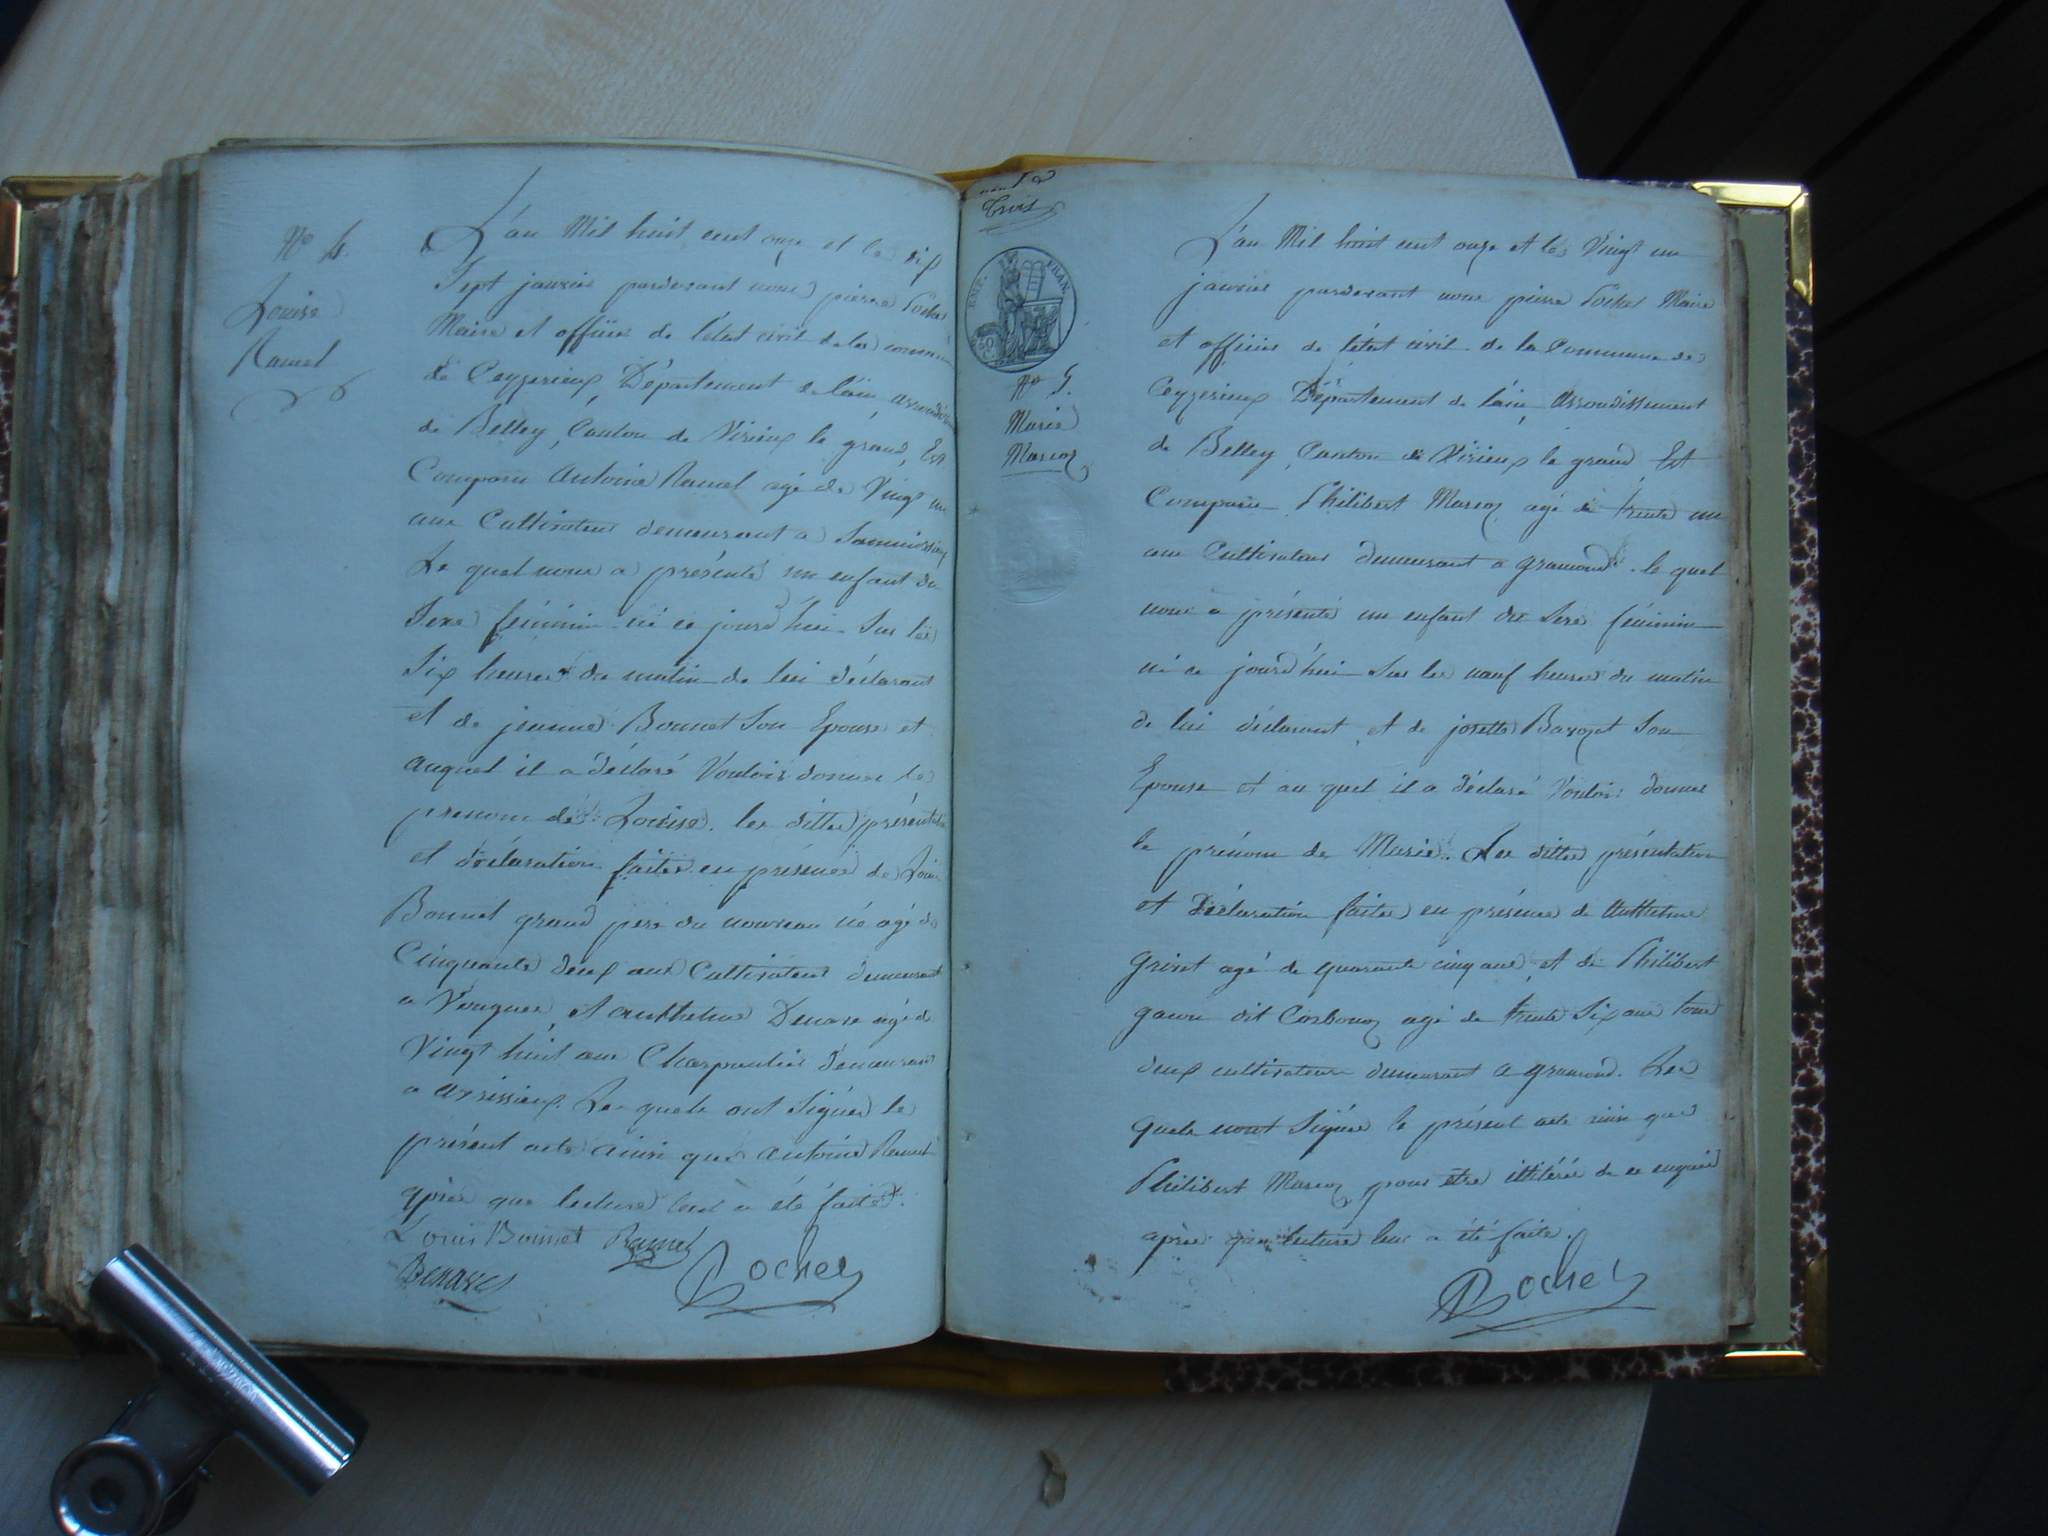 N° 4.
Louise
Ramel
L'an Mil huit cent onze et le dix
Sept janvier pardevant nous pierre Rochet
Maire et officier de l'état civil de la commune
de Ceyzerieux, Département de l'ain, arrondissement
de Belley, Canton de Virieux le grand, Est
Comparu Antoine Ramel agé de Vingt un
ans Cultivateur demeurant a
Le quel nous a présenté un enfant du
Sexe féminin né ce jourd'hui Sur les
Six heures du matin de lui déclarant
et de jeanne Bonnet Son Epouse et
auquel il a déclaré Vouloir donner le
prenom de Louise. les dittes présentation
et déclaration faites en présence de Louis
Bonnet grand pere du nouveau né agé de
Cinquante deux ans Cultivateur demeurant
a Vongnes, et anthelme Denare agé de
Vingt huit ans Charpentier demeurant
a avrissieux. Les quels ont Signés le
présent acte ainsi que Antoine Ramel
après que lecture leur a été faite.
Louis Bonnet Ramel
Benare Rochet
Trois
EMP. FRAN.
N° 5.
Marie
Marcoz
L'an Mil huit cent onze et les Vingt un
janvier pardevant nous pierre Rochet Maire
et officier de l'état civil de la Commune de
Ceyzerieux Département de l'ain, Arrondissement
de Belley, Canton de Virieux le grand Est
Comparu Philibert Marcoz agé de trente un
ans Cultivateur demeurant a gramond. le quel
nous a présenté un enfant du Sexe féminin
né ce jourd'hui Sur les neuf heures du matin
de lui déclarant et de josette Bavozet Son
Epouse et au quel il a déclaré Vouloir donner
le prénom de Marie. Les dittes présentation
et Déclaration faites en présence de Anthelme
grivet agé de quarante cinq ans et de Philibert
gavin dit Carbonoz agé de trente Six ans tous
deux cultivateurs demeurant a gramond. Les
quels nont Signés le présent acte ainsi que
Philibert Marcoz pour être illitérés de ce enquis
après que lecture leur a été faite.
Rochet